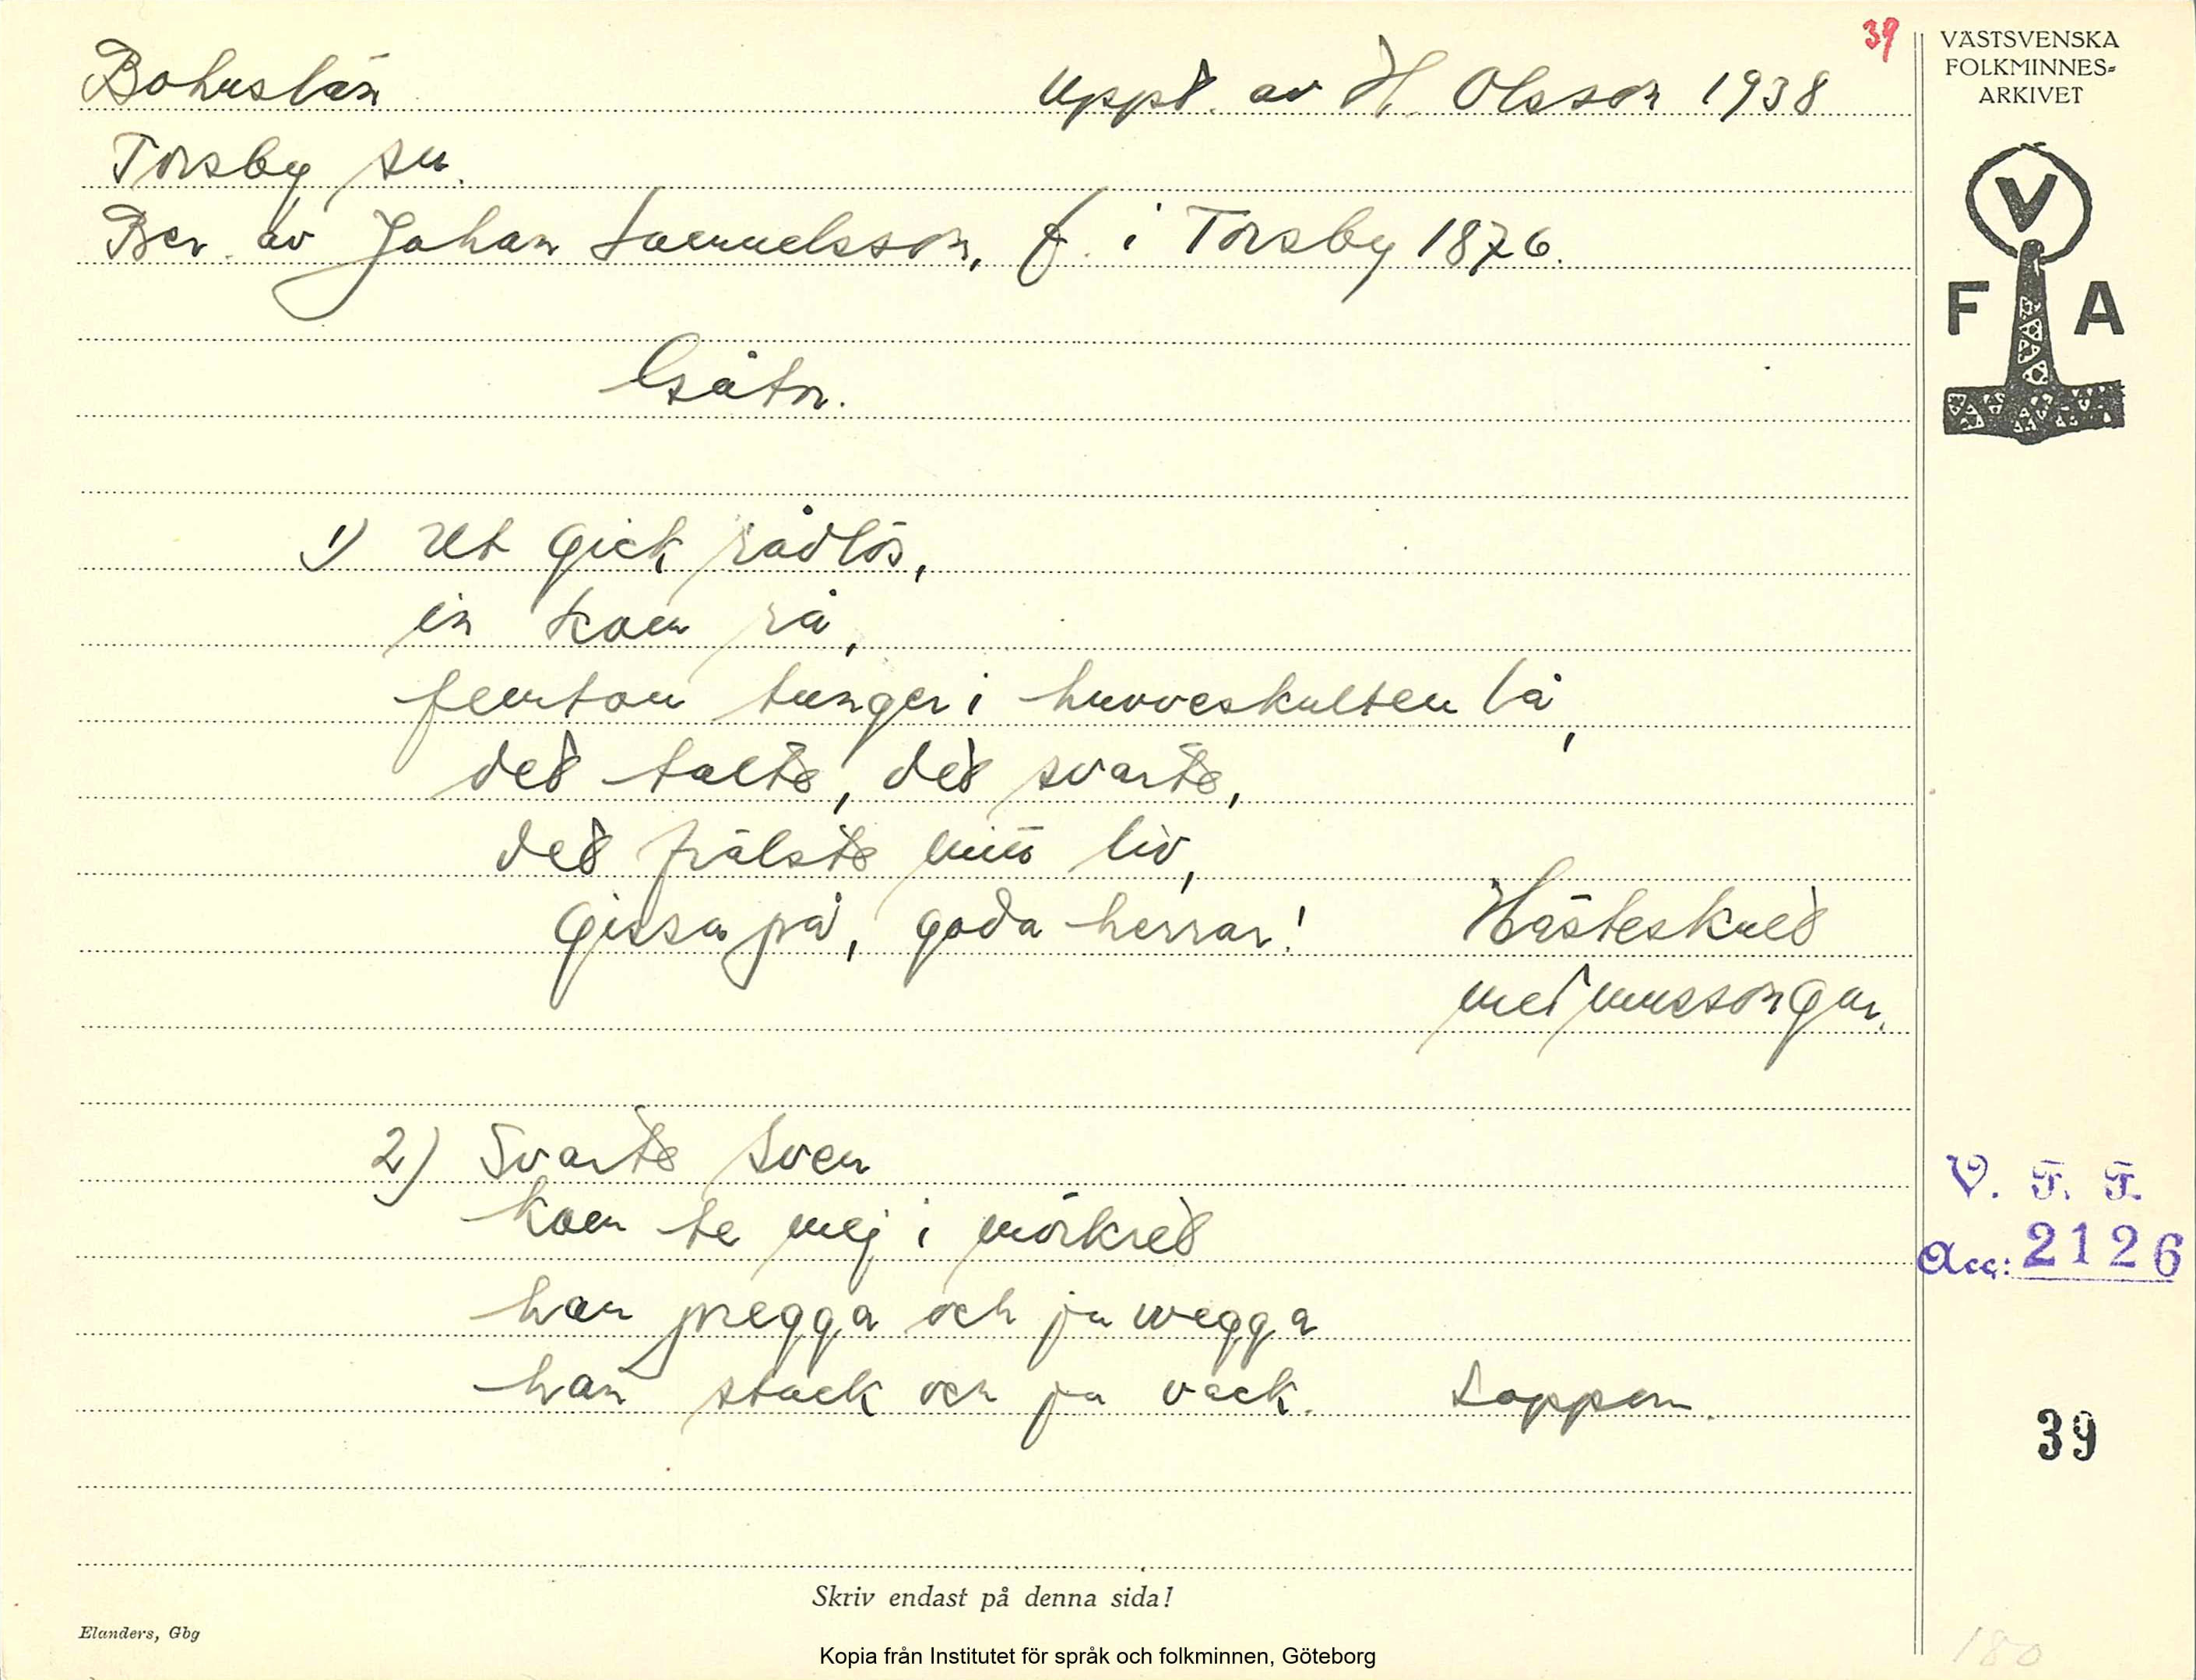 39
Bohuslän
Uppt. av H. Olsson 1938
Torsby sn.
Ber. av Johan Samuelsson, f. i Torsby 1876.
Gåtor.
1) Ut gick rådlös,
in kom rå,
femton tunger i huvveskulten lå,
det talte, det svarte,
det frälste mitt liv,
Gissa på, goda herrar!
Hästeskult
met mussongar.
2) Svarte Sven
kom te mej i mörkret
han pregga och ja wegga
han stack och ja vack.
Loppan.
VÄSTSVENSKA
FOLKMINNES-
ARKIVET
V
F A
V. F. F.
Acc: 2126
39
180
Skriv endast på denna sida!
Elanders, Gbg
Kopia från Institutet för språk och folkminnen, Göteborg